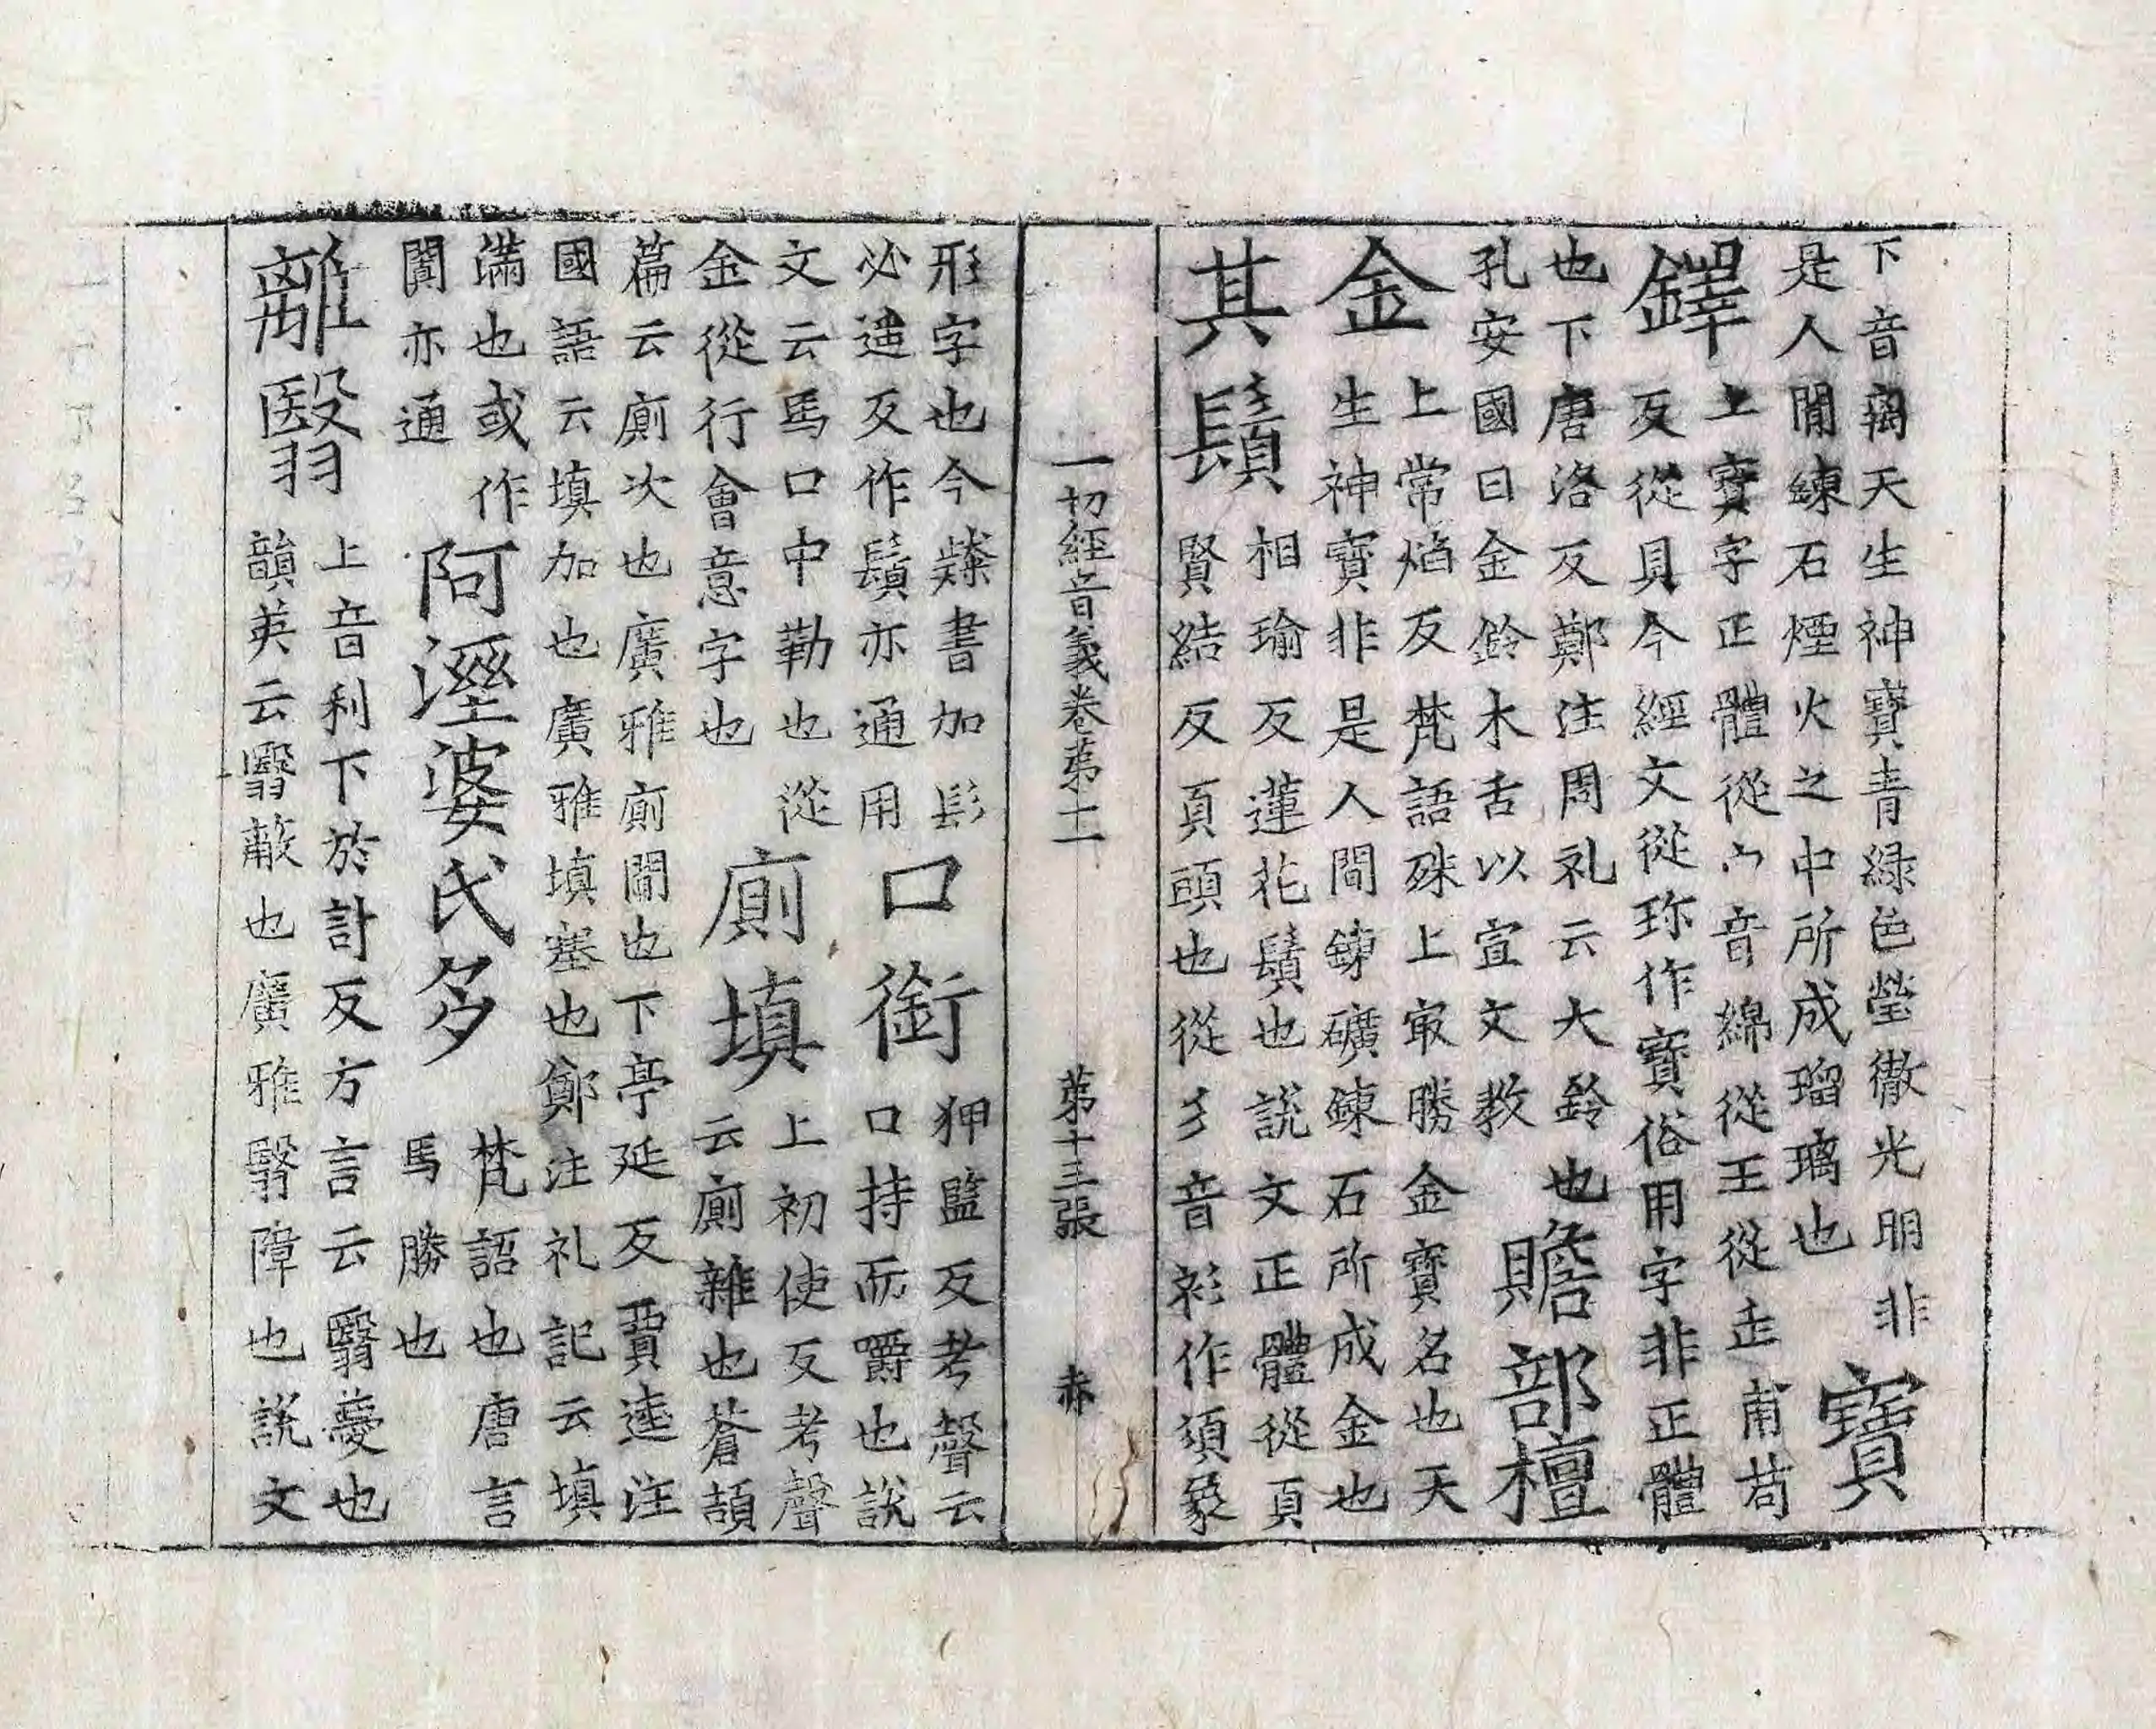 下音离天生神寶青綠色瑩徹光明非
是人間練石煙火之中所成瑠璃也
寶
鐸
上寶字正體從宀音綿從王從缶甫苟
反從貝今經文從珎作寳俗用字非正體
也下唐洛反鄭注周礼云大鈴也
孔安國曰金鈴木舌以宣文教
贍部檀
金
上常焰反梵語殊上㝡勝金寶名也天
生神寶非是人間鍊礦鍊石所成金也
其鬚
相瑜反蓮花鬚也說文正體從頁
賢結反頁頭也從彡音衫作須象
一切經音義卷苐十一 苐十三張 赤
形字也今㯃書加髟
必遥反作鬚亦通用
口銜
狎監反考聲云
口持而嚼也說
文云馬口中勒也從
金從行會意字也
廁填
上初使反考聲
云廁雜也蒼頡
篇云廁次也廣雅廁間也下亭延反賈逵注
國語云填加也廣雅填塞也鄭注礼記云填
滿也或作
闐亦通
阿溼婆氏多
梵語也唐言
馬勝也
離翳
上音利下於計反方言云翳薆也
韻英云翳蔽也廣雅翳障也說文